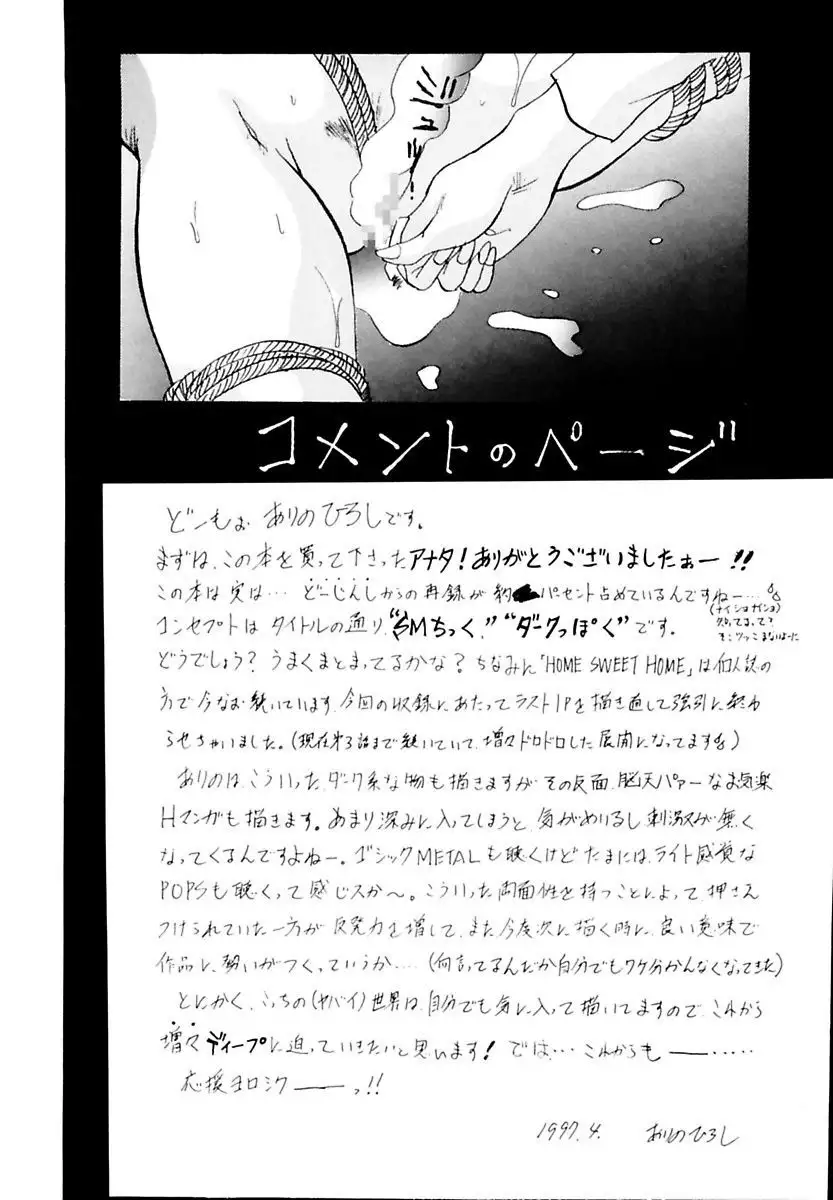 コメントのページ
どーもぉ ありのひろしです。
まずは、この本を買って下さったアナタ！ありがとうございましたぁー！！
この本は実は… どーじんしからの再録が約 パーセント占めているんですねー…
(ナイショナイショ)
知ってまって？
そこツッこまないよーに
コンセプトはタイトルの通り、“SMちっく”“ダークっぽく”です。
どうでしょう？うまくまとまってるかな？ちなみに「HOME SWEET HOME」は個人誌の
方で今なお続いています。今回の収録にあたってラスト1Pを描き直して強引に終わ
らせちゃいました。(現在第3話まで続いていて、増々ドロドロした展開になってます)
ありのは、こういったダーク系な物も描きますがその反面、脳天パァーなお気楽
Hマンガも描きます。あまり深みに入ってしまうと、気がめいるし刺激が無く
なってくるんですよねー。ゴシックMETALも聴くけどたまには、ライト感覚な
POPSも聴くって感じスか〜。こういった両面性を持つことによって押さえ
つけられていた一方が反発力を増して、また今度次に描く時に、良い意味で
作品に勢いがつくっていうか…(何言ってるんだか自分でもワケ分かんなくなってきた)
とにかく、こっちの(ヤバイ)世界は、自分でも気に入って描いてますので、これから
増々ディープに迫っていきたいと思います！では…これからも―――……
応援ヨロシク―――っ!!
1997.4. ありのひろし